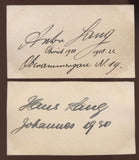 Anton Lang
Christ 1900 1910. 22
Oberammergau
Hans Lang
Johannes 1930